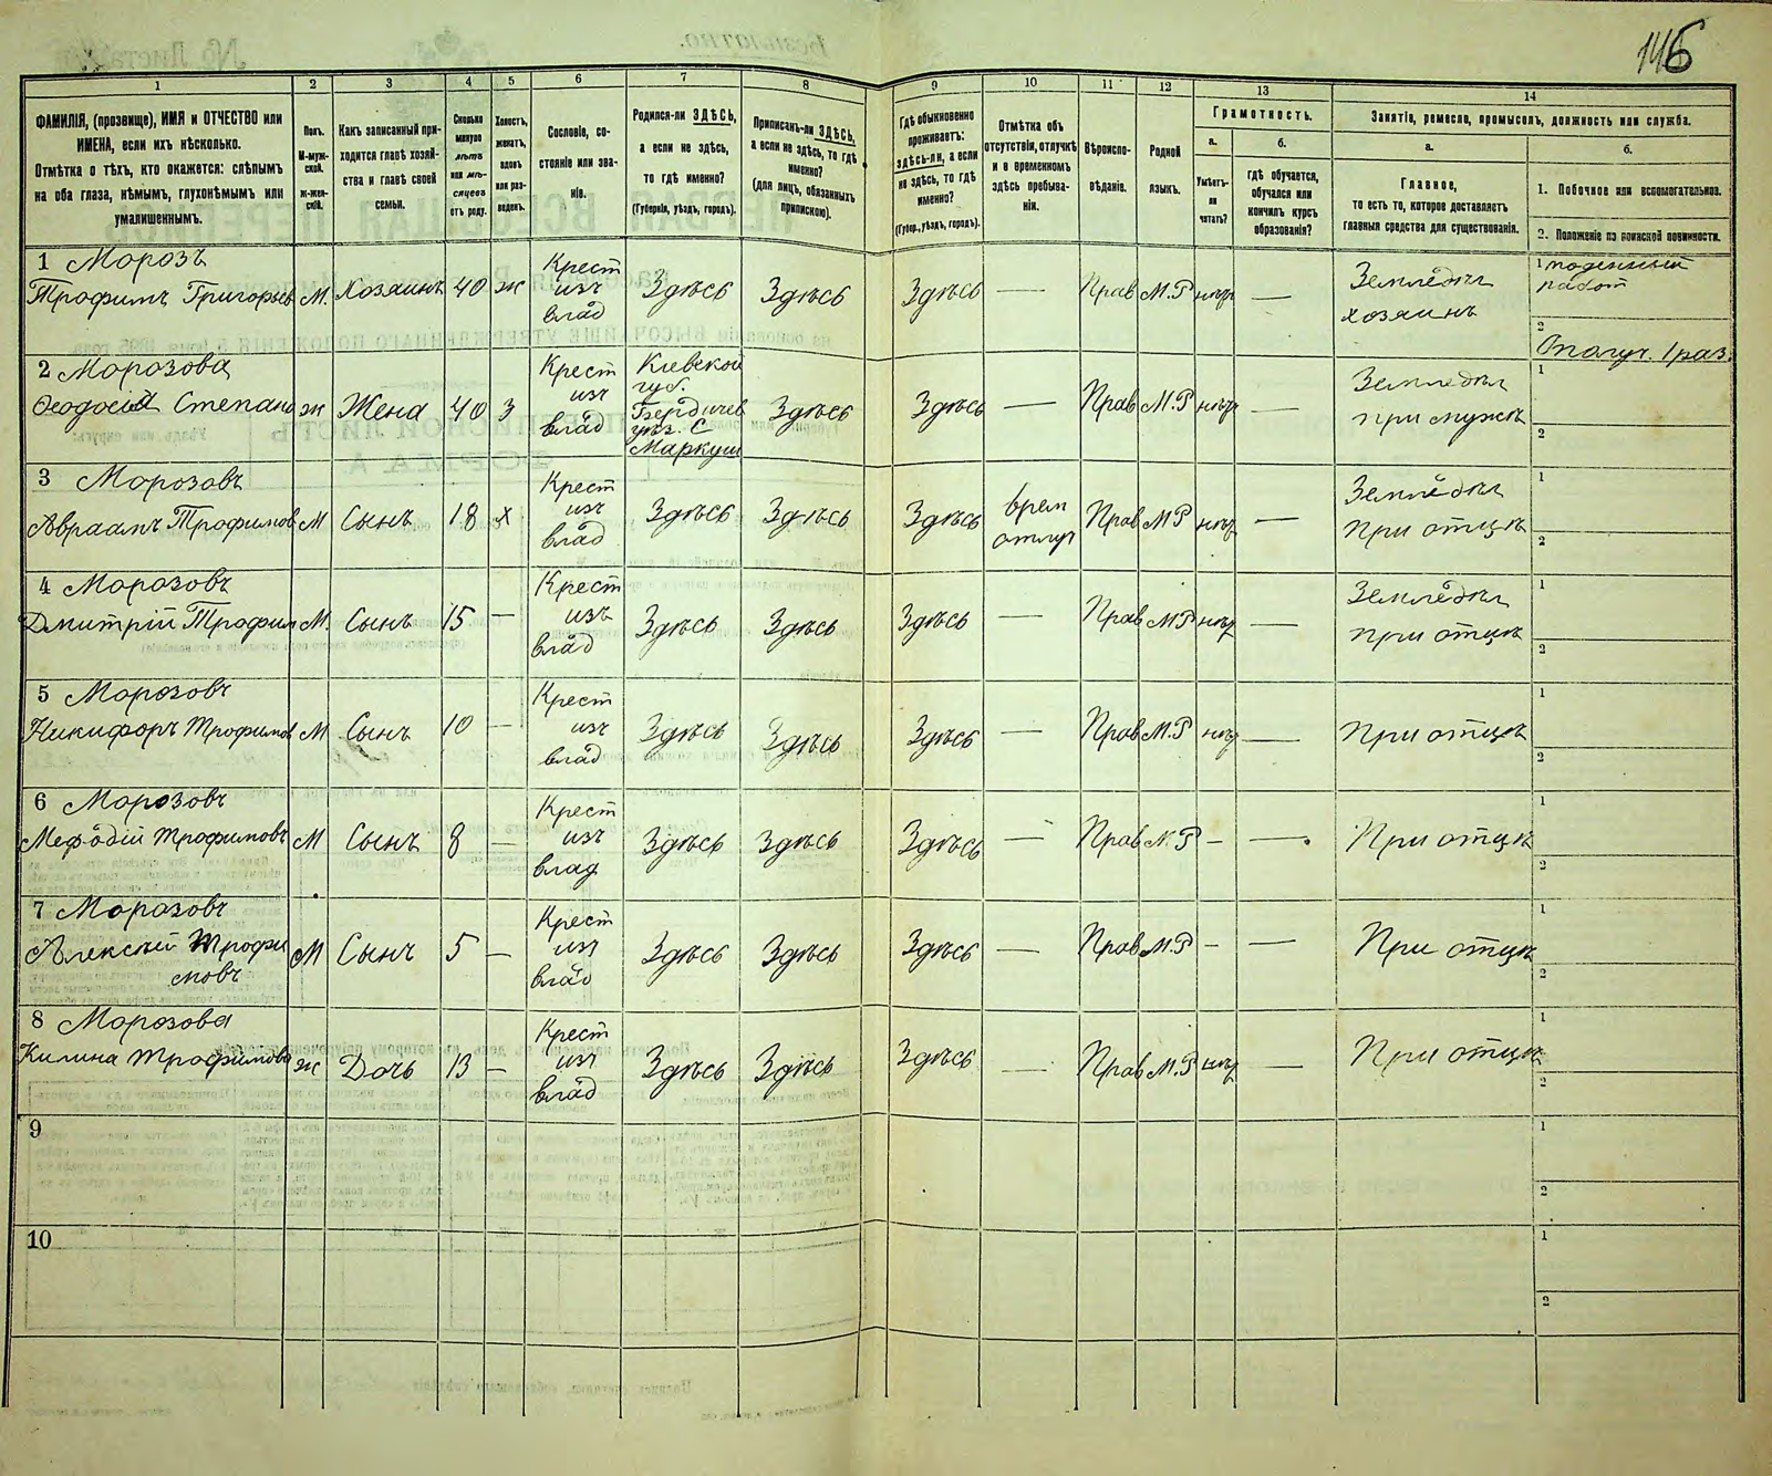 146
1 2 3 4 5 6 7 8 9 10 11 12 13 14
ФАМИЛІЯ, (прозвище), ИМЯ и ОТЧЕСТВО или
ИМЕНА, если ихъ нѣсколько.
Отмѣтка о тѣхъ, кто окажется: слѣпымъ
на оба глаза, нѣмымъ, глухонѣмымъ или
умалишеннымъ.
Полъ.
М-муж-
ской.
ж-жен-
скій.
Какъ записанный при-
ходится главѣ хозяй-
ства и главѣ своей
семьи.
Сколько
минуло
лѣтъ
или мѣ-
сяцевъ
отъ роду.
Холостъ,
женатъ,
вдовъ
или раз-
веденъ.
Сословіе, со-
стояніе или зва-
ніе.
Родился-ли ЗДѢСЬ,
а если не здѣсь,
то гдѣ именно?
(Губернія, уѣздъ, городъ).
Приписанъ-ли ЗДѢСЬ,
а если не здѣсь, то гдѣ
именно?
(для лицъ, обязанныхъ
припискою).
Гдѣ обыкновенно
проживаетъ:
здѣсь-ли, а если
не здѣсь, то гдѣ
именно?
(Губер., уѣздъ, городъ).
Отмѣтка объ
отсутствіи, отлучкѣ
и о временномъ
здѣсь пребыва-
ніи.
Вѣроиспо-
вѣданіе.
Родной
языкъ.
Грамотность.
а.
Умѣетъ-
ли
читать?
б.
гдѣ обучается,
обучался или
кончилъ курсъ
образованія?
Занятіе, ремесло, промыселъ, должность или служба.
а.
Главное,
то есть то, которое доставляетъ
главныя средства для существованія.
б.
1. Побочное или вспомогательное.
2. Положеніе по воинской повинности.
1 Морозъ
Трофимъ Григорьев М. Хозяинъ 40 ж Крест изъ влад Здѣсь Здѣсь Здѣсь — Прав М.Р нѣт —
Земледѣл
хозяинъ
1 поденный
работ
2
Ополч. 1 раз.
2 Морозова
Феодосія Степано ж Жена 40 З Крест изъ влад
Кіевской
губ.
Бердичев
уѣз. с
Маркуш
Здѣсь Здѣсь — Прав М.Р нѣт —
Земледѣл
при мужѣ
1
2
3 Морозовъ
Авраамъ Трофимов М Сынъ 18 х Крест изъ влад Здѣсь Здѣсь Здѣсь
врем
отлуч
Прав М.Р нѣт —
Земледѣл
При отцѣ
1
2
4 Морозовъ
Дмитрій Трофим М. Сынъ 15 — Крест изъ влад Здѣсь Здѣсь Здѣсь — Прав М.Р нѣт —
Земледѣл
при отцѣ
1
2
5 Морозовъ
Никифоръ Трофимов М Сынъ 10 — Крест изъ влад Здѣсь Здѣсь Здѣсь — Прав М.Р нѣт — При отцѣ
1
2
6 Морозовъ
Мефодій Трофимовъ М Сынъ 8 — Крест изъ влад Здѣсь Здѣсь Здѣсь — Прав М.Р — — При отцѣ
1
2
7 Морозовъ
Алексѣй Трофи
мовъ
М Сынъ 5 — Крест изъ влад Здѣсь Здѣсь Здѣсь — Прав М.Р — — При отцѣ
1
2
8 Морозова
Килина Трофимова ж Дочь 13 — Крест изъ влад Здѣсь Здѣсь Здѣсь — Прав М.Р нѣт — При отцѣ
1
2
9
1
2
10
1
2